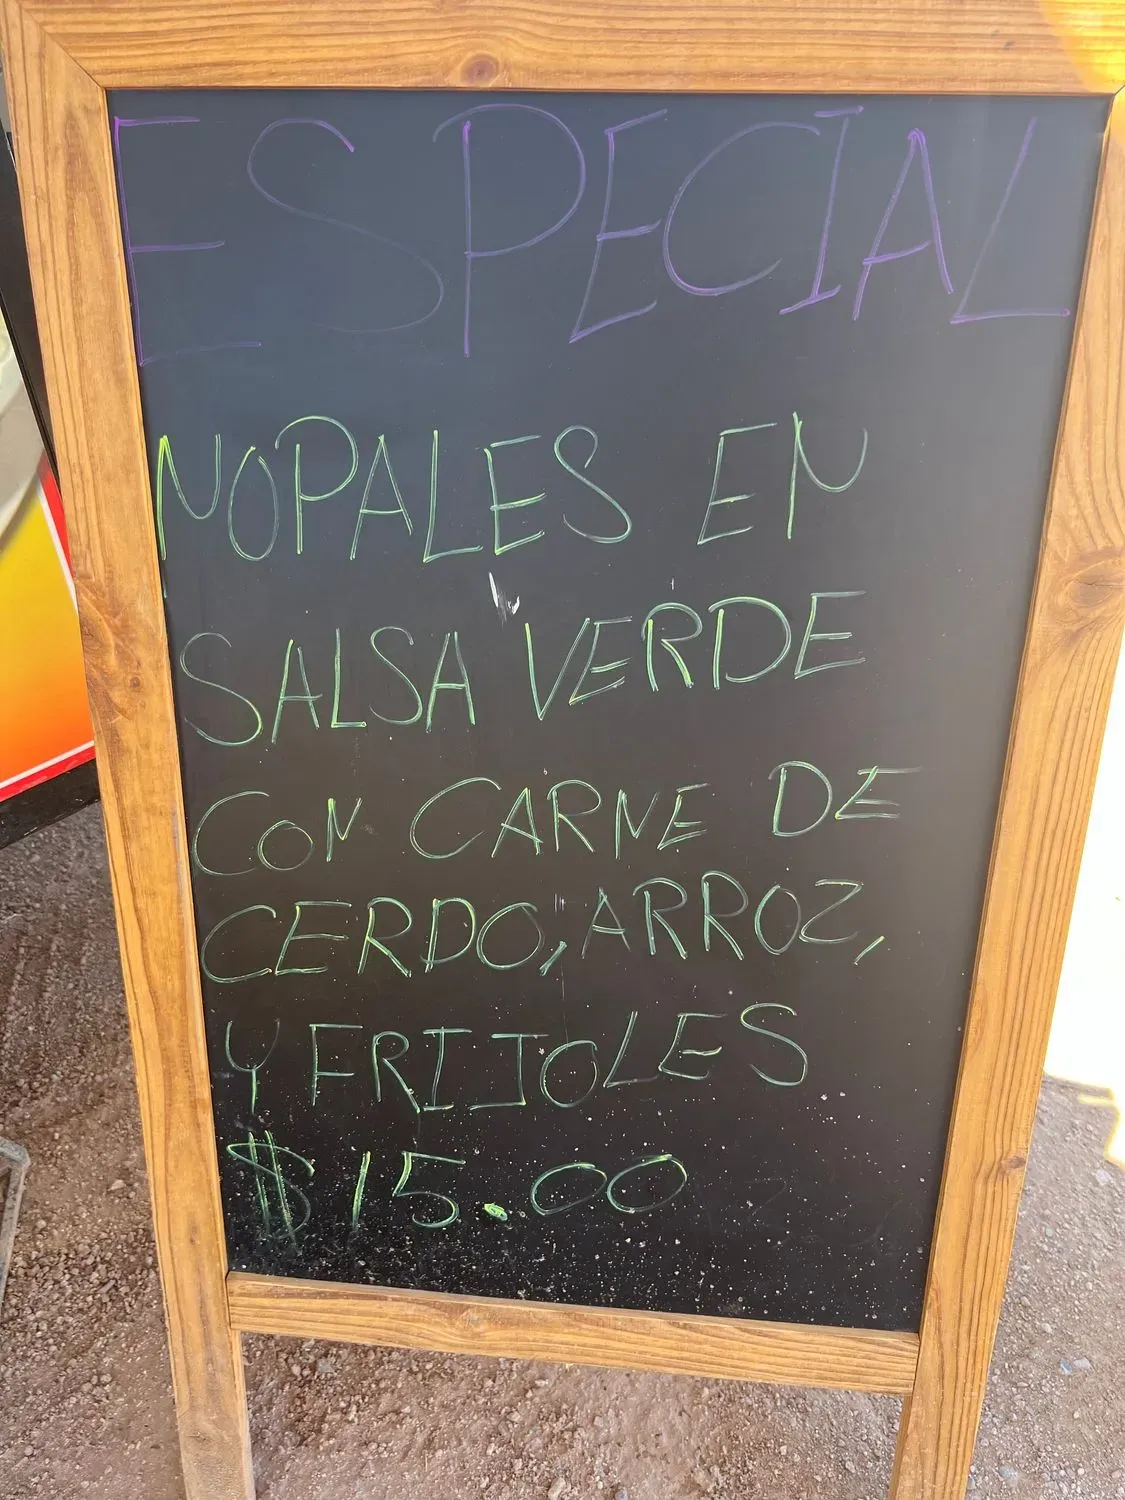 ESPECIAL
NOPALES EN
SALSA VERDE
CON CARNE DE
CERDO, ARROZ,
Y FRIJOLES
$15.00